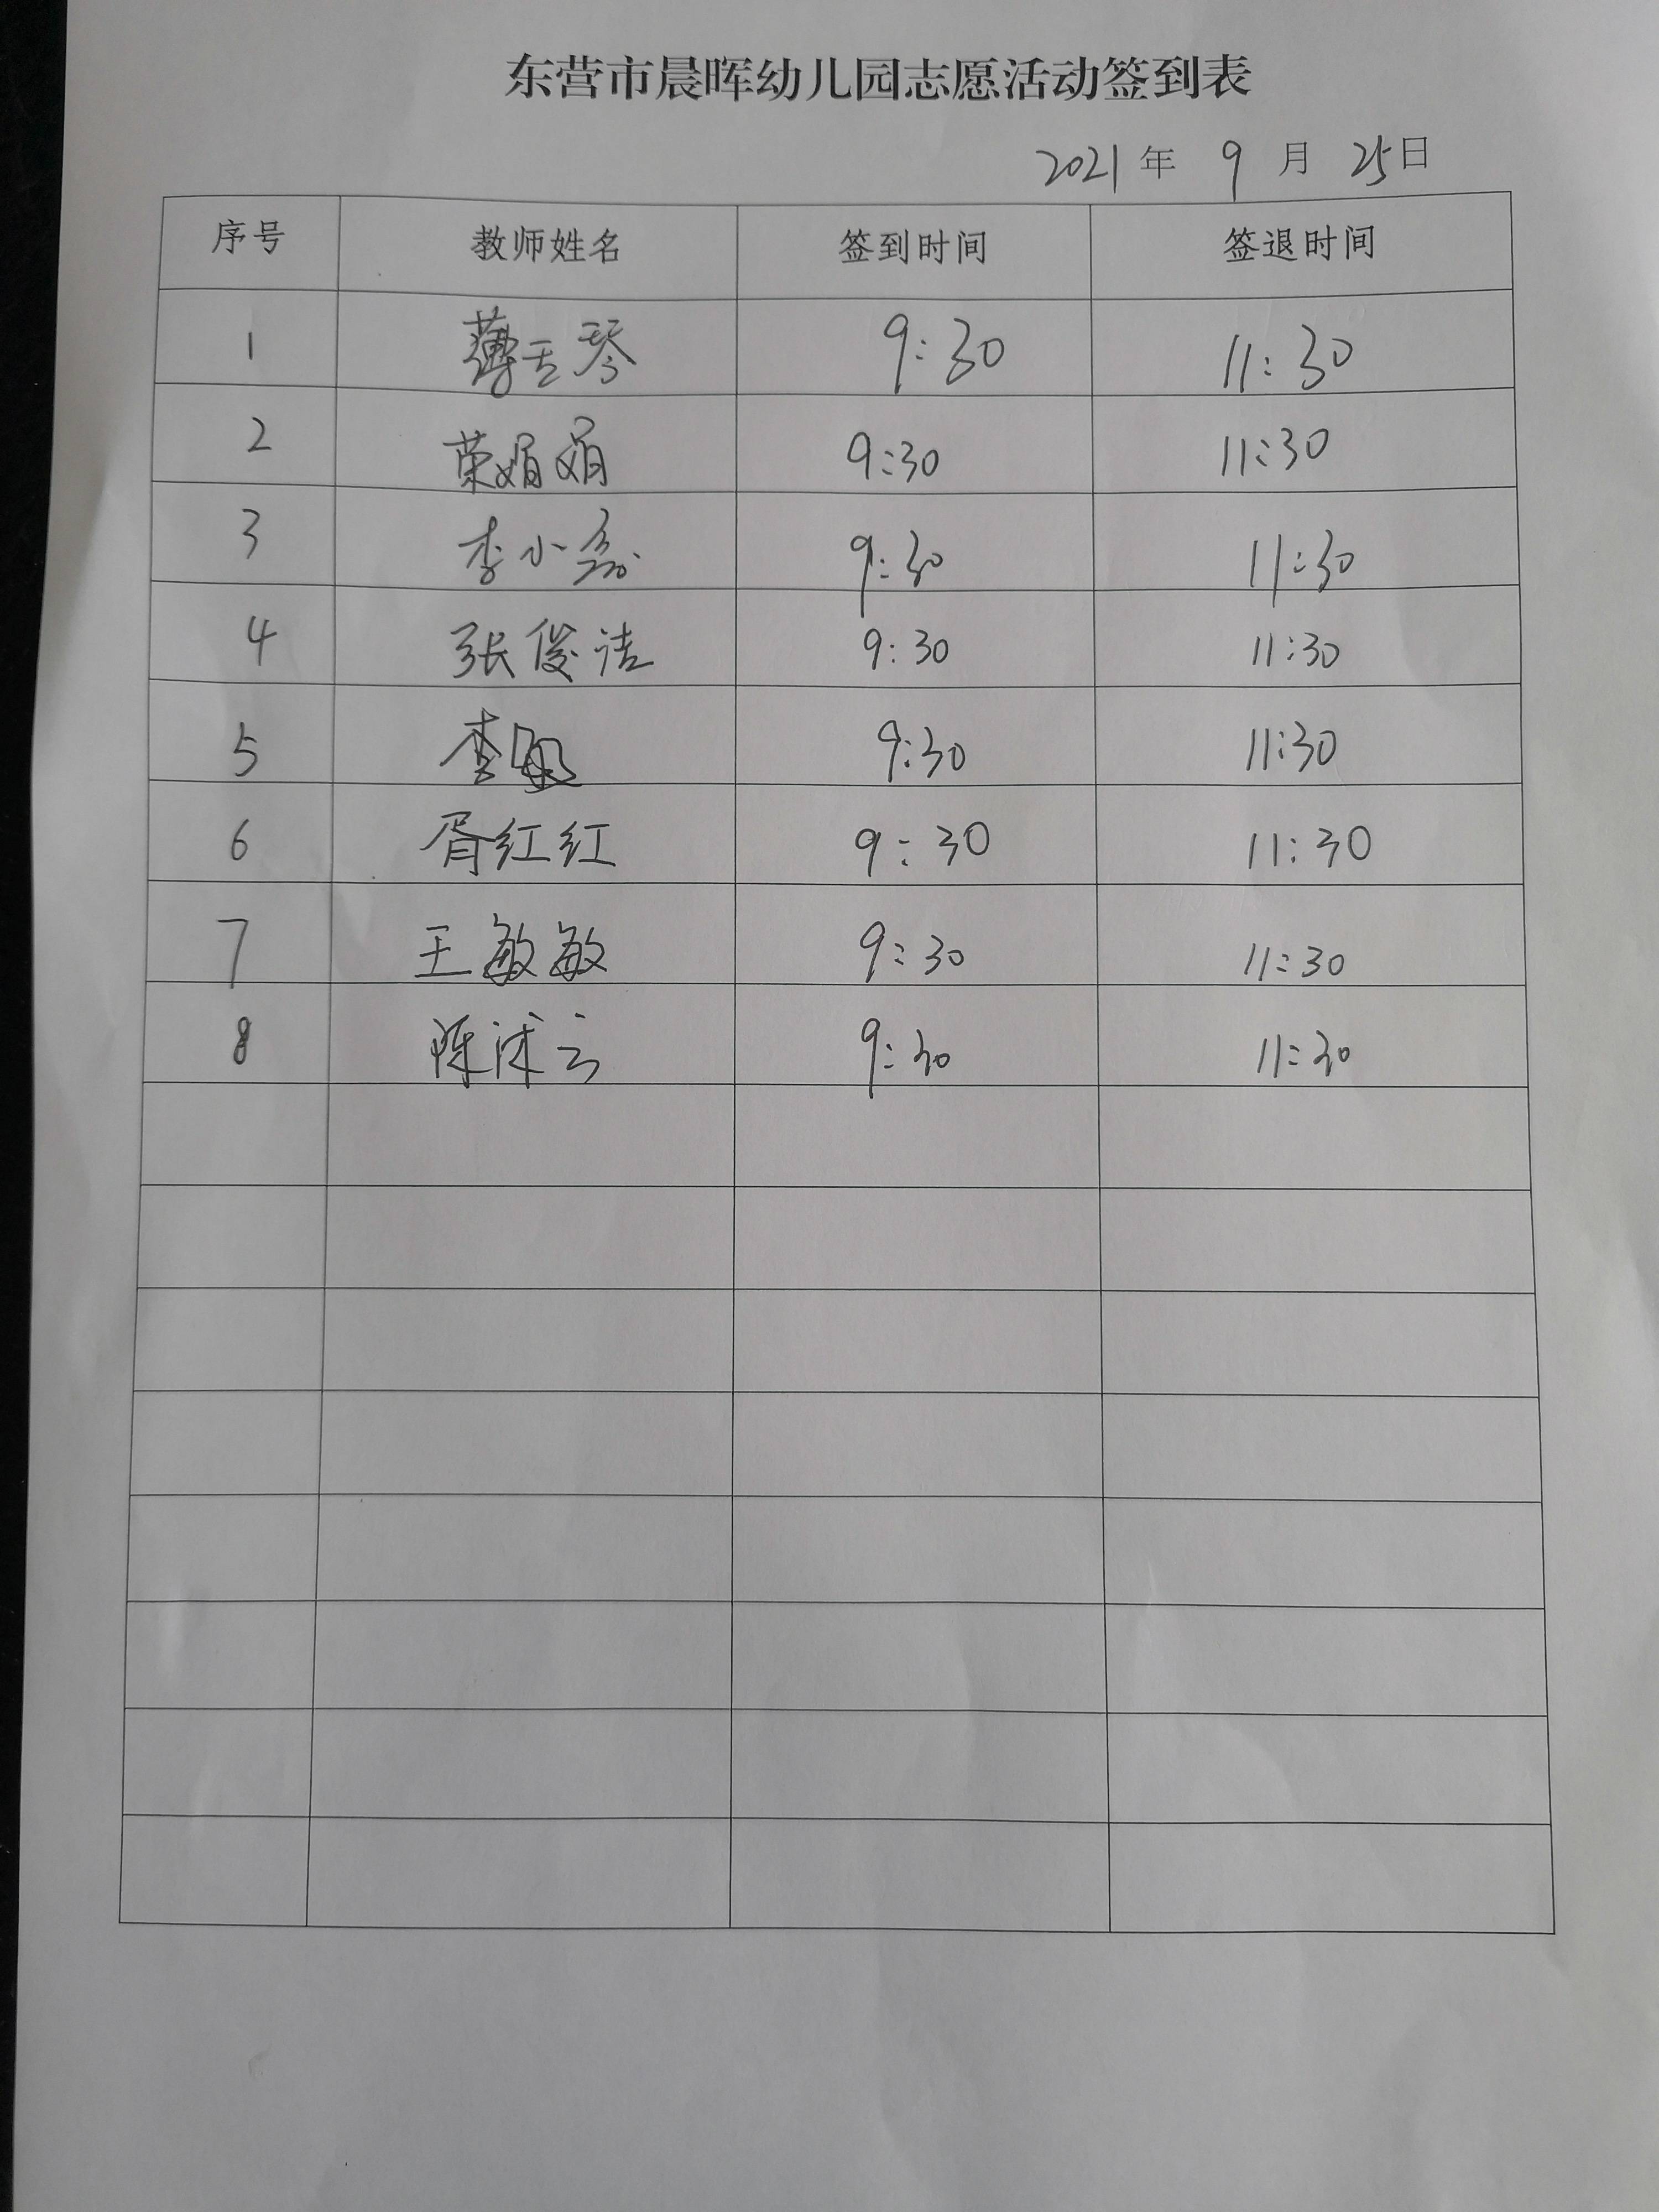 东营市晨晖幼儿园志愿活动签到表
2021年 9月 25日
序号 教师姓名 签到时间 签退时间
1 薄玉琴 9:30 11:30
2 荣娟娟 9:30 11:30
3 李小磊 9:30 11:30
4 张俊洁 9:30 11:30
5 李敏 9:30 11:30
6 胥红红 9:30 11:30
7 王敏敏 9:30 11:30
8 9:30 11:30